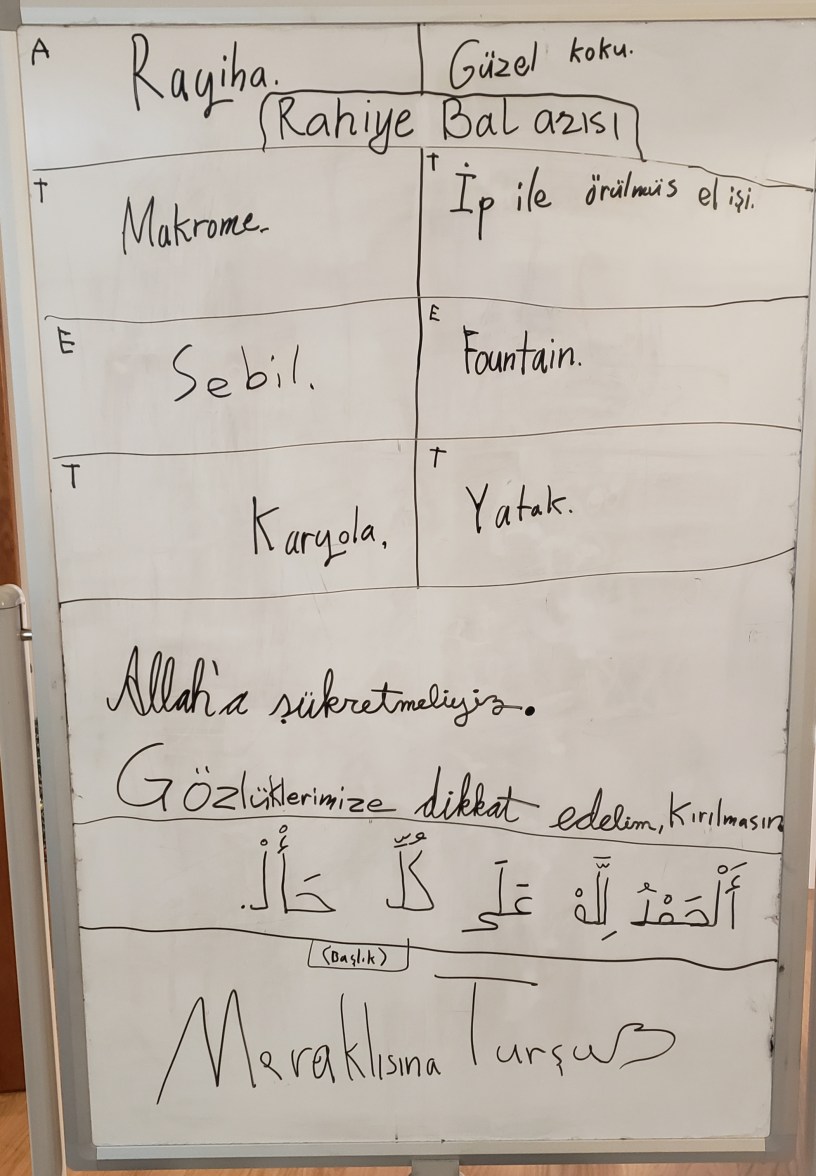 A Rayiha. Güzel koku.
Rahiye Bal azısı
T Makrome. T İp ile örülmüs el işi.
E Sebil. E Fountain.
T Karyola. T Yatak.
Allah'a şükretmeliyiz.
Gözlüklerimize dikkat edelim, Kırılmasın
أَلْحَمْدُ لِلَّهْ عَلَى كُلِّ حَأْلْ.
(Başlık)
Meraklısına Turşu